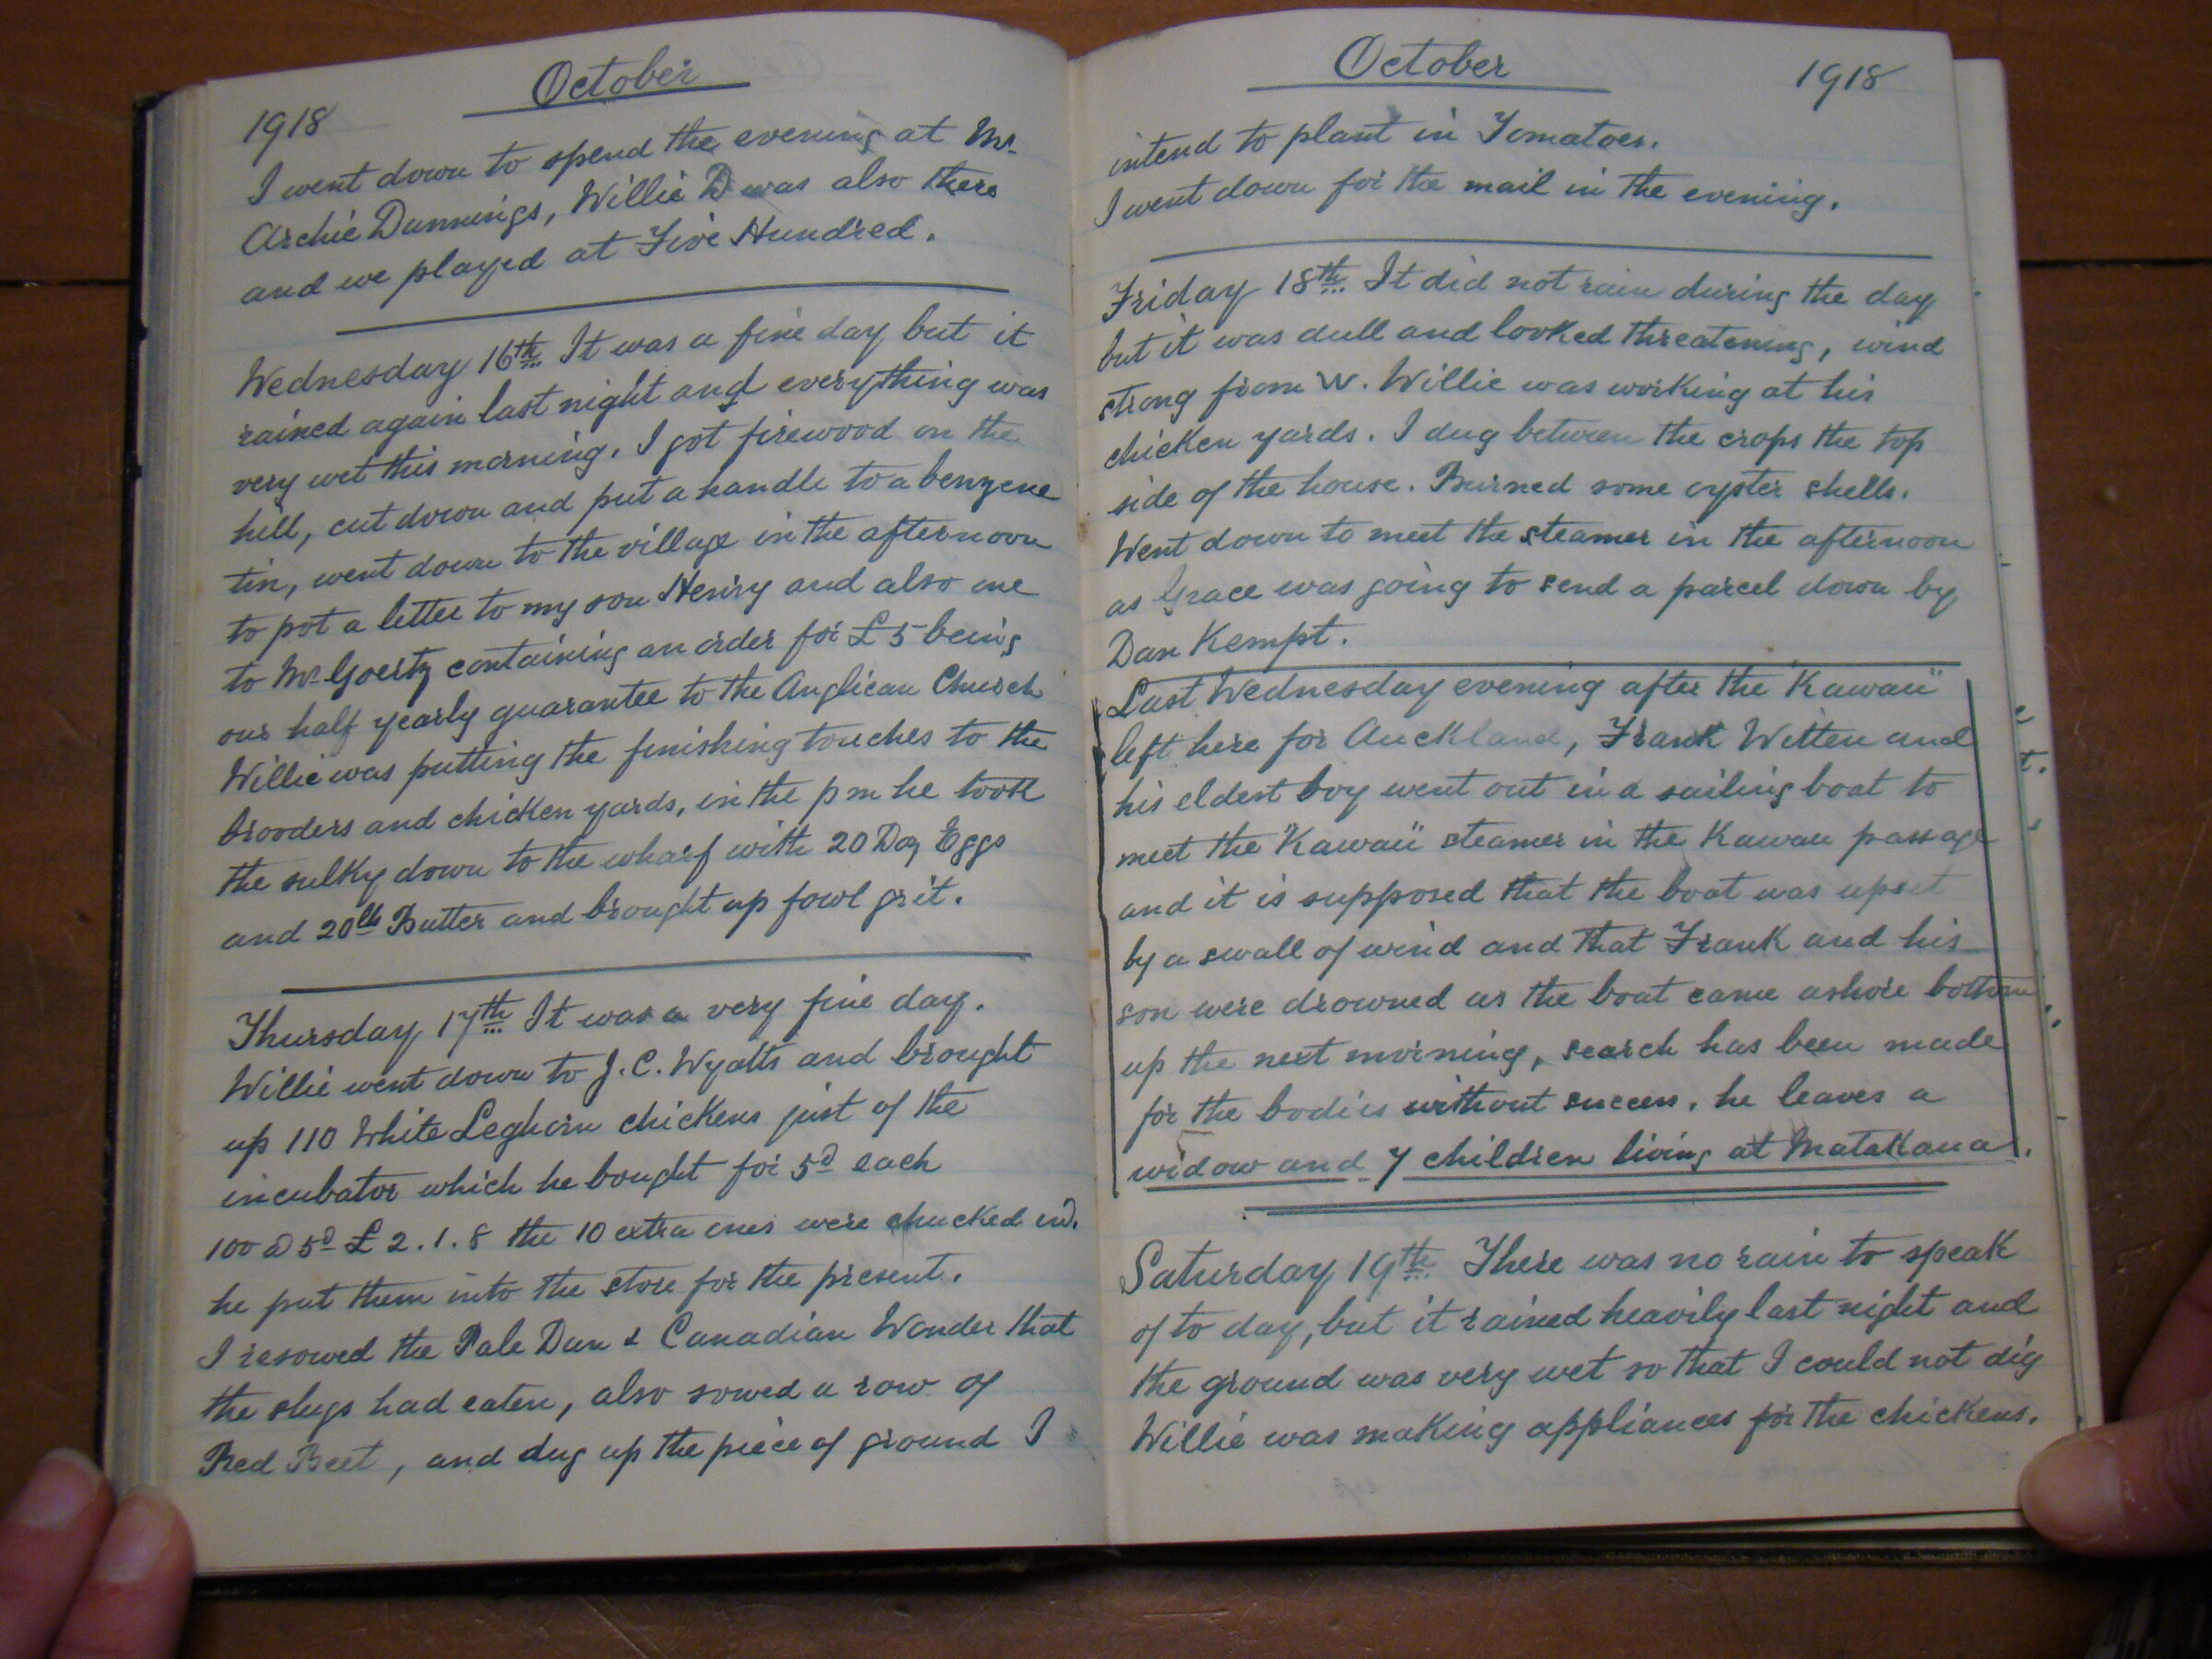 October
1918
I went down to spend the evening at Mr
Archie Dunnings, Willie D was also there
and we played at Five Hundred.
Wednesday 16th It was a fine day but it
rained again last night and everything was
very wet this morning. I got firewood on the
hill, cut down and put a handle to a benzene
tin, went down to the village in the afternoon
to pot a letter to my son Henry and also one
to Mr Goertz containing an order for £5 being
our half yearly guarantee to the Anglican Church
Willie was putting the finishing touches to the
brooders and chicken yards, in the pm he took
the sulky down to the wharf with 20 Doz Eggs
and 20lb Butter and brought up fowl grit.
Thursday 17th It was a very fine day.
Willie went down to J. C. Wyatts and brought
up 110 White Leghorn chickens just of the
incubator which he bought for 5d each
100 @ 5d £2.1.8 the 10 extra ones were chucked in.
he put them into the store for the present.
I resowed the Pale Dun & Canadian Wonder that
the slugs had eaten, also sowed a row of
Red Beet, and dug up the piece of ground I
October
1918
intend to plant in Tomatoes.
I went down for the mail in the evening.
Friday 18th It did not rain during the day
but it was dull and looked threatening, wind
strong from W. Willie was working at his
chicken yards. I dug between the crops the top
side of the house. Burned some oyster shells.
Went down to meet the steamer in the afternoon
as Grace was going to send a parcel down by
Dan Kempt.
Last Wednesday evening after the "Kawau"
left here for Auckland, Frank Witten and
his eldest boy went out in a sailing boat to
meet the "Kawau" steamer in the Kawau passage
and it is supposed that the boat was upset
by a swall of wind and that Frank and his
son were drowned as the boat came ashore bottom
up the next morning, search has been made
for the bodies without success, he leaves a
widow and 7 children living at Matakana.
Saturday 19th There was no rain to speak
of to day, but it rained heavily last night and
the ground was very wet so that I could not dig
Willie was making appliances for the chickens.